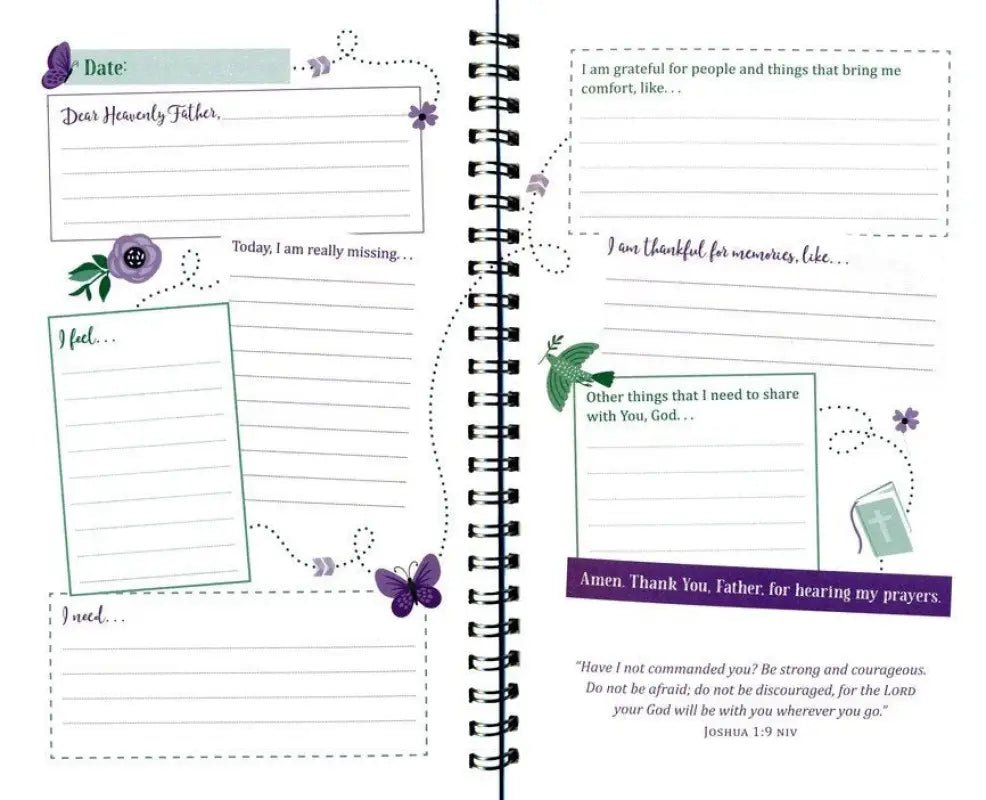 Date:
Dear Heavenly Father,
Today, I am really missing...
I feel...
I need...
I am grateful for people and things that bring me
comfort, like...
I am thankful for memories, like...
Other things that I need to share
with You, God...
Amen. Thank You, Father, for hearing my prayers.
"Have I not commanded you? Be strong and courageous.
Do not be afraid; do not be discouraged, for the LORD
your God will be with you wherever you go."
JOSHUA 1:9 NIV